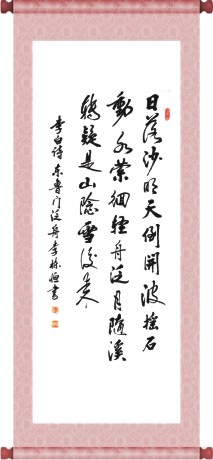 日落沙明天倒開波搖石
動水縈徊輕舟泛月隨溪
轉疑是山陰雪後來
李白诗东鲁门泛舟李栋恒書